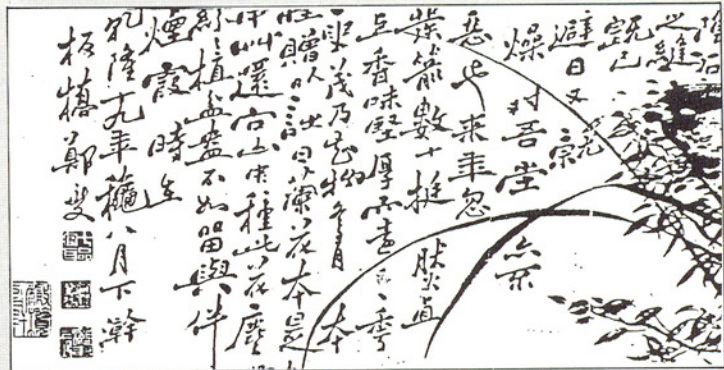 石
之縫
既已
避日又就
燥對吾堂亦不
惡也来年忽
發箭數十挺然直
上香味堅厚而遠又一年
更茂乃知物亦各有本
性贈以詩曰蘭花本是
中艸還向山中種此花塵
紛紛植盆盎不如留與伴
煙霞時在
乾隆十九年龝八月下澣
板橋鄭燮